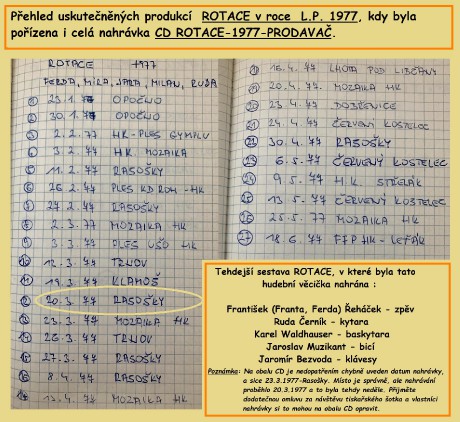 Přehled uskutečněných produkcí ROTACE v roce L.P. 1977, kdy byla
pořízena i celá nahrávka CD ROTACE-1977-PRODAVAČ.
ROTACE 1977
FERDA, MÍRA, JARA, MILAN, RUDA
① 23.1. 77 OPOČNO
② 30.1. 77 OPOČNO
③ 2.2.77 HK-PLES GYMPLU
④ 3.2.77 HK. MOZAIKA
⑤ 11.2.77 RASOŠKY
⑥ 26.2.77 PLES KD ROH-HK
⑦ 27.2.77 RASOŠKY
⑧ 2.3.77 MOZAIKA HK
⑨ 5.3.77 PLES USO HK
⑩ 12.3.77 TRNOV
⑪ 19.3.77 KLAMOŠ
⑫ 20.3.77 RASOŠKY
⑬ 23.3.77 MOZAIKA HK
⑭ 26.3.77 TRNOV
⑮ 27.3.77 RASOŠKY
⑯ 8.4.77 RASOŠKY
⑰ 13.4.77 MOZAIKA HK
⑱ 16.4.77 LHOTA POD LIBČANY
⑲ 20.4.77. MOZAIKA HK
⑳ 23.4.77 DOBŘENICE
㉑ 24.4.77 ČERVENÝ KOSTELEC
㉒ 30.4.77 RASOŠKY
㉓ 6.5.77 ČERVENÝ KOSTELEC
㉔ 9.5.77 H.K. STŘELÁK
㉕ 13.5.77 ČERVENÝ KOSTELEC
㉖ 25.5.77 MOZAIKA HK
㉗ 18.6.77 HK-LEŤÁK
Tehdejší sestava ROTACE, v které byla tato
hudební věcička nahrána :
František (Franta, Ferda) Řeháček - zpěv
Ruda Černík - kytara
Karel Waldhauser - baskytara
Jaroslav Muzikant - bicí
Jaromír Bezvoda - klávesy
Poznámka: Na obalu CD je nedopatřením chybně uveden datum nahrávky,
a sice 23.3.1977-Rasošky. Místo je správné, ale nahrávání
proběhlo 20.3.1977 a to byla tehdy neděle. Přijměte
dodatečnou omluvu za návštěvu tiskařského šotka a vlastníci
nahrávky si to mohou na obalu CD opravit.